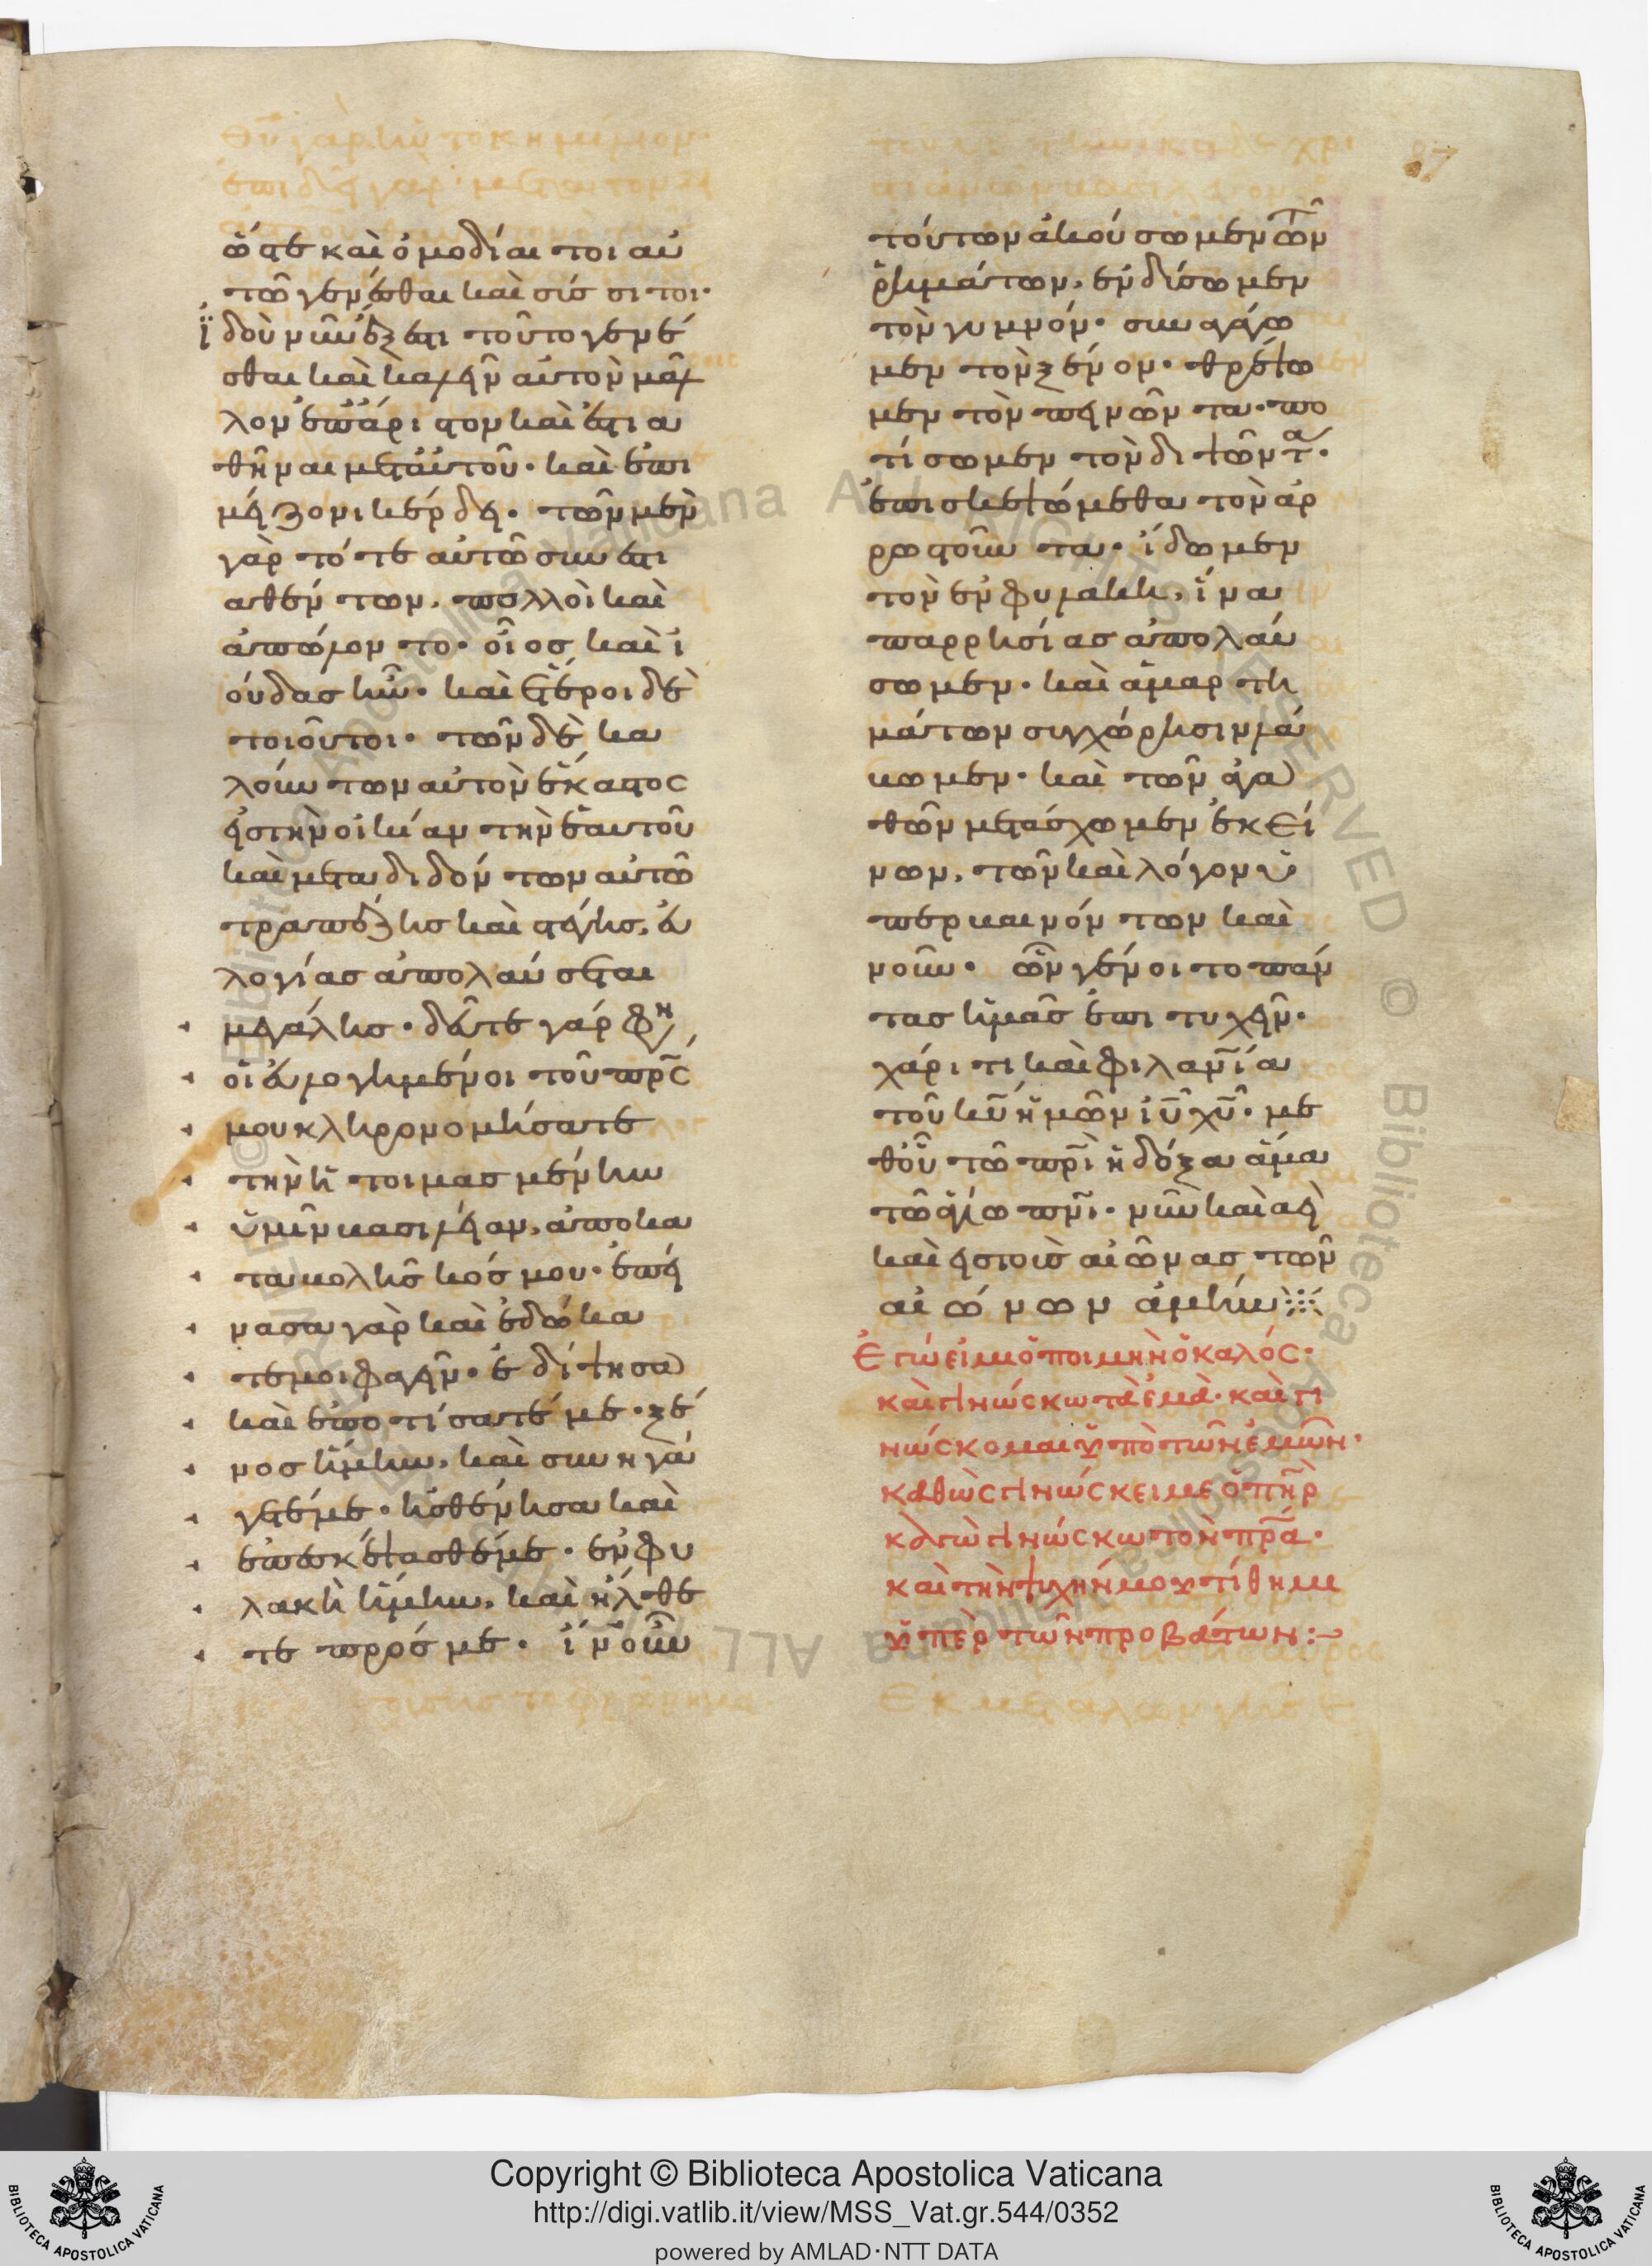 ὥστε καὶ ὁμοδίαιτοι αὐ
τῶ γενέσθαι καὶ σύσσιτοι·
ἰδοὺ νῦν ἔξεστι τοῦτο γενέ
σθαι καὶ καλεῖν αὐτὸν μᾶλ
λον ἐπ' ἄριστον καὶ ἑστια
θῆναι μετ' αὐτοῦ· καὶ ἐπι
μείζονι κέρδει· τῶν μὲν
γὰρ τότε αὐτῶ συνεστι
αθέντων, πολλοὶ καὶ
ἀπώλοντο· οἷος καὶ ἰ
ούδας ἦν· καὶ ἕτεροι δὲ
τοιοῦτοι· τῶν δὲ κα
λούντων αὐτὸν ἕκαστος
εἰς τὴν οἰκίαν τὴν ἑαυτοῦ
καὶ μεταδιδόντων αὐτῶ
τραπέζης καὶ στέγης, εὐ
λογίας ἀπολαύσεται
μεγάλης· δεῦτε γάρ φη
οἱ εὐλογημένοι τοῦ πρς
μου κληρονομήσατε
τὴν ἡτοιμασμένην
ὑμῖν βασιλείαν, ἀπὸ κα
ταβολῆς κόσμου· ἐπεί
νασα γὰρ καὶ ἐδώκα
τε μοι φαγεῖν· ἐδίψησα
καὶ ἐποτίσατέ με· ξέ
νος ἤμην, καὶ συνηγά
γετέ με· ἠσθένησα καὶ
ἐπεσκέψασθέ με· ἐν φυ
λακῇ ἤμην, καὶ ἤλθε
τε πρός με· ἵν' οὖν
τούτων ἀκούσωμεν τῶν
ῥημάτων, ἐνδύσωμεν
τὸν γυμνόν· συναγάγω
μεν τὸν ξένον· θρέψω
μεν τὸν πεινῶντα· πο
τίσωμεν τὸν διψῶντα·
ἐπισκεψώμεθα τὸν ἀρ
ρωστοῦντα· ἴδωμεν
τὸν ἐν φυλακῇ, ἵνα
παρρησίας ἀπολαύ
σωμεν· καὶ ἁμαρτη
μάτων συγχώρησιν λά
βωμεν· καὶ τῶν ἀγα
θῶν μετάσχωμεν ἐκεί
νων, τῶν καὶ λόγον ὑ
περβαινόντων καὶ
νοῦν· ὧν γένοιτο πάν
τας ἡμᾶς ἐπιτυχεῖν·
χάριτι καὶ φιλανία
τοῦ κυ ἡμῶν ιυ χυ· με
θ' οὗ τῶ πρι ἡ δόξα ἅμα
τῶ ἁγίω πνι· νῦν καὶ ἀεὶ
καὶ εἰς τοὺς αἰῶνας τῶν
αἰώνων ἀμήν
Ἐγώ εἰμι ὁ ποιμὴν ὁ καλός·
καὶ γινώσκω τὰ ἐμὰ· καὶ γι
νώσκομαι ὑπὸ τῶν ἐμῶν·
καθὼς γινώσκει με ὁ πηρ
κἀγὼ γινώσκω τὸν πρα·
καὶ τὴν ψυχήν μου τίθημι
ὑπὲρ τῶν προβάτων:
Copyright © Biblioteca Apostolica Vaticana
http://digi.vatlib.it/view/MSS_Vat.gr.544/0352
powered by AMLAD·NTT DATA
BIBLIOTECA APOSTOLICA VATICANA
BIBLIOTECA APOSTOLICA VATICANA